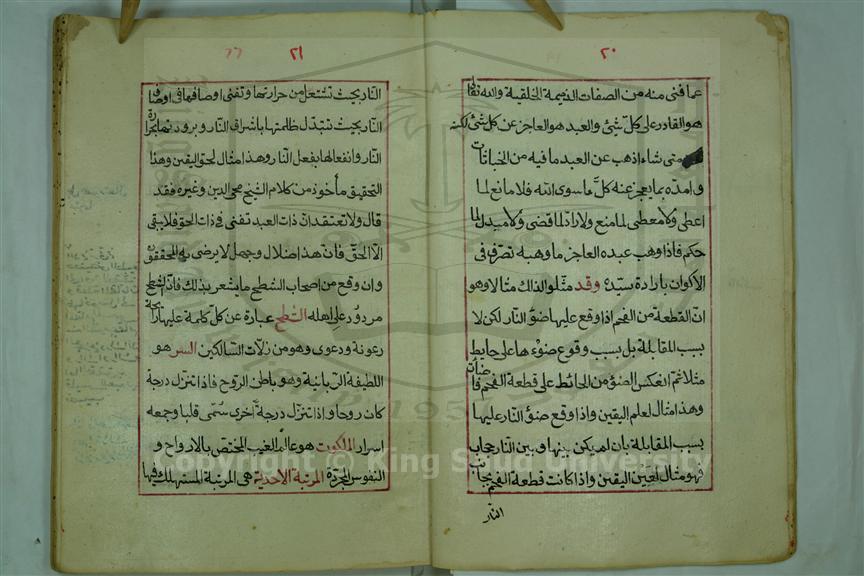 ٢٠
عما فنى منه من الصفات الذميمة الخلقية والله تعالى
هو القادر على كلّ شئ والعبد هو العاجز عن كل شئ لكنه
متى شاء اذهب عن العبد ما فيه من الخباثات
وامدّه بما يعجز عنه كلّ ما سوى الله فلا مانع لما
اعطى ولا معطى لما منع ولا رادّ لما قضى ولا مبدل لما
حكم فاذا وهب عبده العاجز ما وهبه تصرّف فى
الاكوان بارادة سيّده وقد مثّلوا لذلك مثالا وهو
انّ القطعة من الفحم اذا وقع عليها ضوٴ النار لكن لا
بسبب المقابلة بل بسبب وقوع ضوٴها على حايط
مثلا ثمّ انعكس الضوٴ من الحائط على قطعة الفحم فاضائت
وهذا مثال لعلم اليقين واذا وقع ضوٴ النار عليها
بسبب المقابلة بان لم يكن بينها وبين النار حجاب
فهو مثال لعين اليقين واذا كانت قطعة الفحم بجانب
النار
٢١
النار بحيث تشتعل من حرارتها وتفنى اوصافها فى اوصاف
النار بحيث تتبدّل ظلمتها باشراق النار وبرودتها بحرارة
النار وانفعالها بفعل النار وهذا مثال لحق اليقين وهذا
التحقيق مأخوذ من كلام الشيخ محى الدين وغيره فقد
قال ولا تعتقد انّ ذات العبد تفنى فى ذات الحق فلا يبقى
الّا الحقّ فانّ هذا ضلال وجهل لا يرضى به المحققون
وان وقع من اصحاب الشطح ما يشعر بذلك فانّ الشطح
مردود على اهله الشطح عبارة عن كلّ كلمة عليها رائحة
رعونة ودعوى وهو من زلّات السّالكين السر هو
اللطيفة الربانية وهو باطن الروح فاذا تنزل درجة
كان روحا واذا تنزل درجة أخرى سُمّى قلبا وجمعه
اسرار الملكوت هو عالم الغيب المختص بالارواح و
النفوس المجرّدة المرتبة الاحدية هى المرتبة المستهلك فيها
Copyright © King Saud University
1957